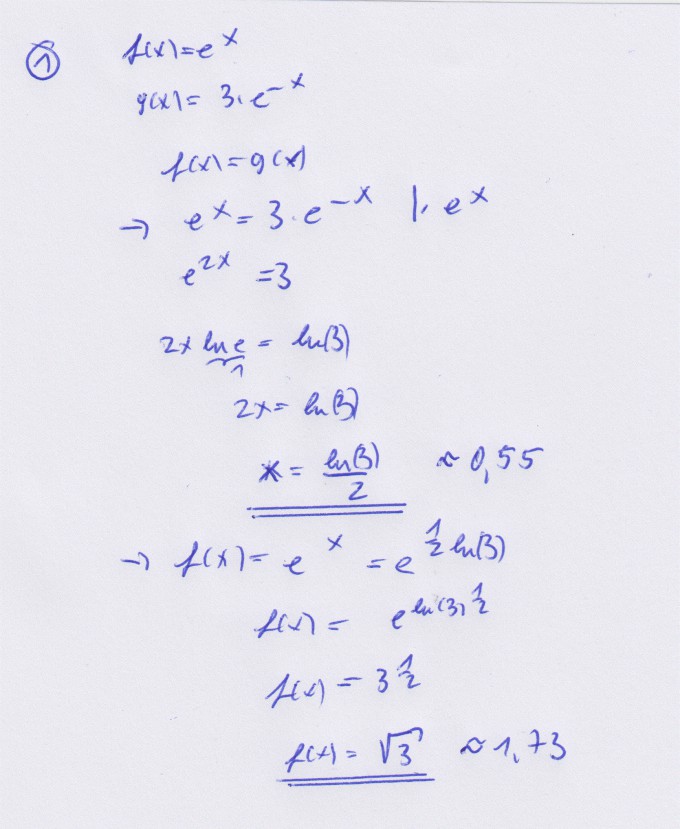 ① f(x) = e^x
g(x) = 3 · e^-x
f(x) = g(x)
→ e^x = 3 · e^-x | · e^x
e^2x = 3
2x ln e = ln(3)
1
2x = ln(3)
x = ln(3)/2 ≈ 0,55
→ f(x) = e^x = e^½ ln(3)
f(x) = e^ln(3)^½
f(x) = 3^½
f(x) = √3 ≈ 1,73